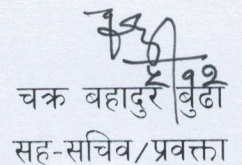 ५|१२
चक्र बहादुर बुढा
सह-सचिव/प्रवक्ता